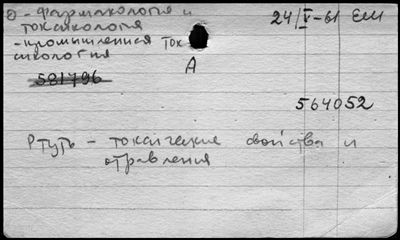 О - фармакология и
токсикология
24/V-61 ЕМ
- промышленная ток
сикология
А
581796
564052
Ртуть - токсические свойства и
отравления